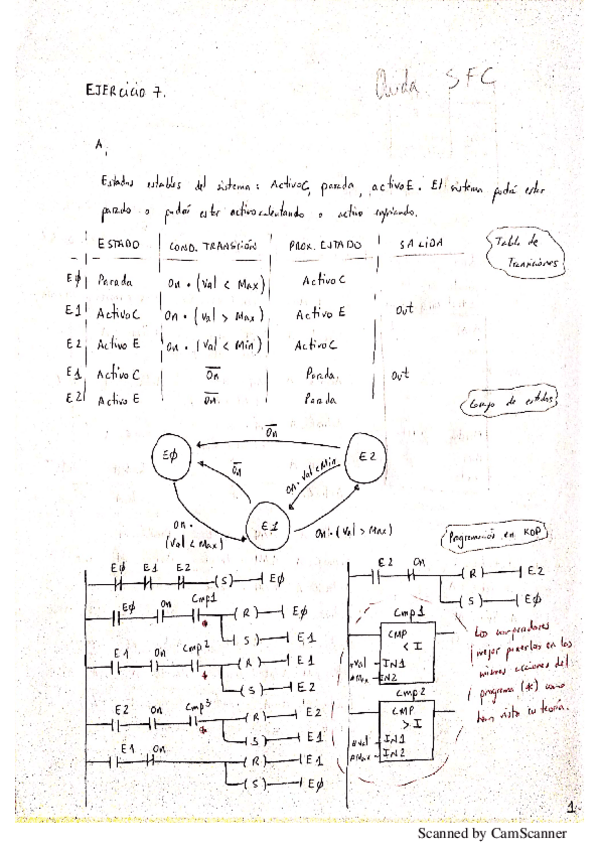 EJERcicio 7.
Duda SFC
A,
Estados estables del sistema: ActivoC, parada, activoE. El sistema podrá estar
parado o podrá estar activo calentando o activo enfriando.
ESTADO COND. TRANSICIÓN PROX. ESTADO SALIDA
Tabla de
Transiciones
EØ Parada On · (Val < Max) ActivoC
E1 ActivoC On · (Val > Max) Activo E Out
E2 Activo E On · (Val < Min) ActivoC
E1 Activo C On Parada. Out
E2 Activo E On. Parada
de estados
On
EØ E2
On
On · Val < Min
E1
On ·
(Val < Max)
On · (Val > Max)
Programación en KOP
EØ E1 E2 (S) EØ
EØ On Cmp1 (R) EØ
* (S) E1
E1 On Cmp2 (R) E1
* (S) E2
E2 On Cmp3 (R) E2
* (S) E1
E1 On (R) E1
(S) EØ
E2 On (R) E2
(S) EØ
Cmp1
CMP
< I
IN1
IN2
Cmp2
CMP
> I
IN1
IN2
Los comparadores
mejor ponerlos en las
mismas acciones del
programa (*) como
han visto en teoría.
1
Scanned by CamScanner